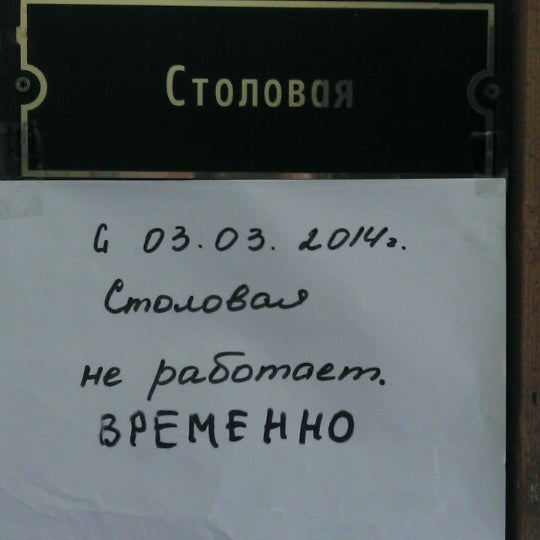 Столовая
С 03.03. 2014г.
Столовая
не работает.
ВРЕМЕННО